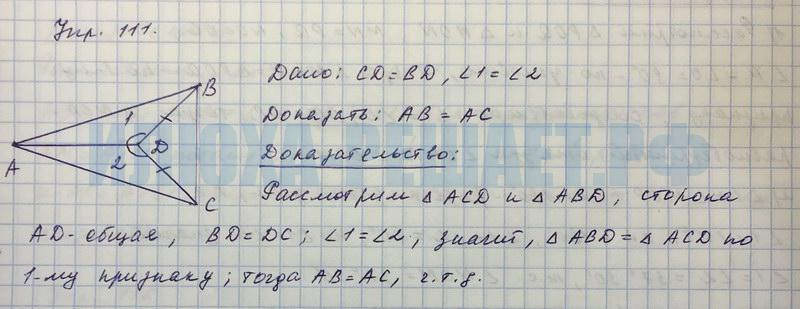 Упр. 111.
Дано: CD = BD, ∠1 = ∠2
Доказать: AB = AC
Доказательство:
Рассмотрим △ ACD и △ ABD, сторона
AD - общая, BD = DC; ∠1 = ∠2, значит, △ ABD = △ ACD по
1-му признаку; тогда AB = AC, ч.т.д.
A
B
1
D
2
C
ИЛЮХА-РЕШАЕТ.РФ